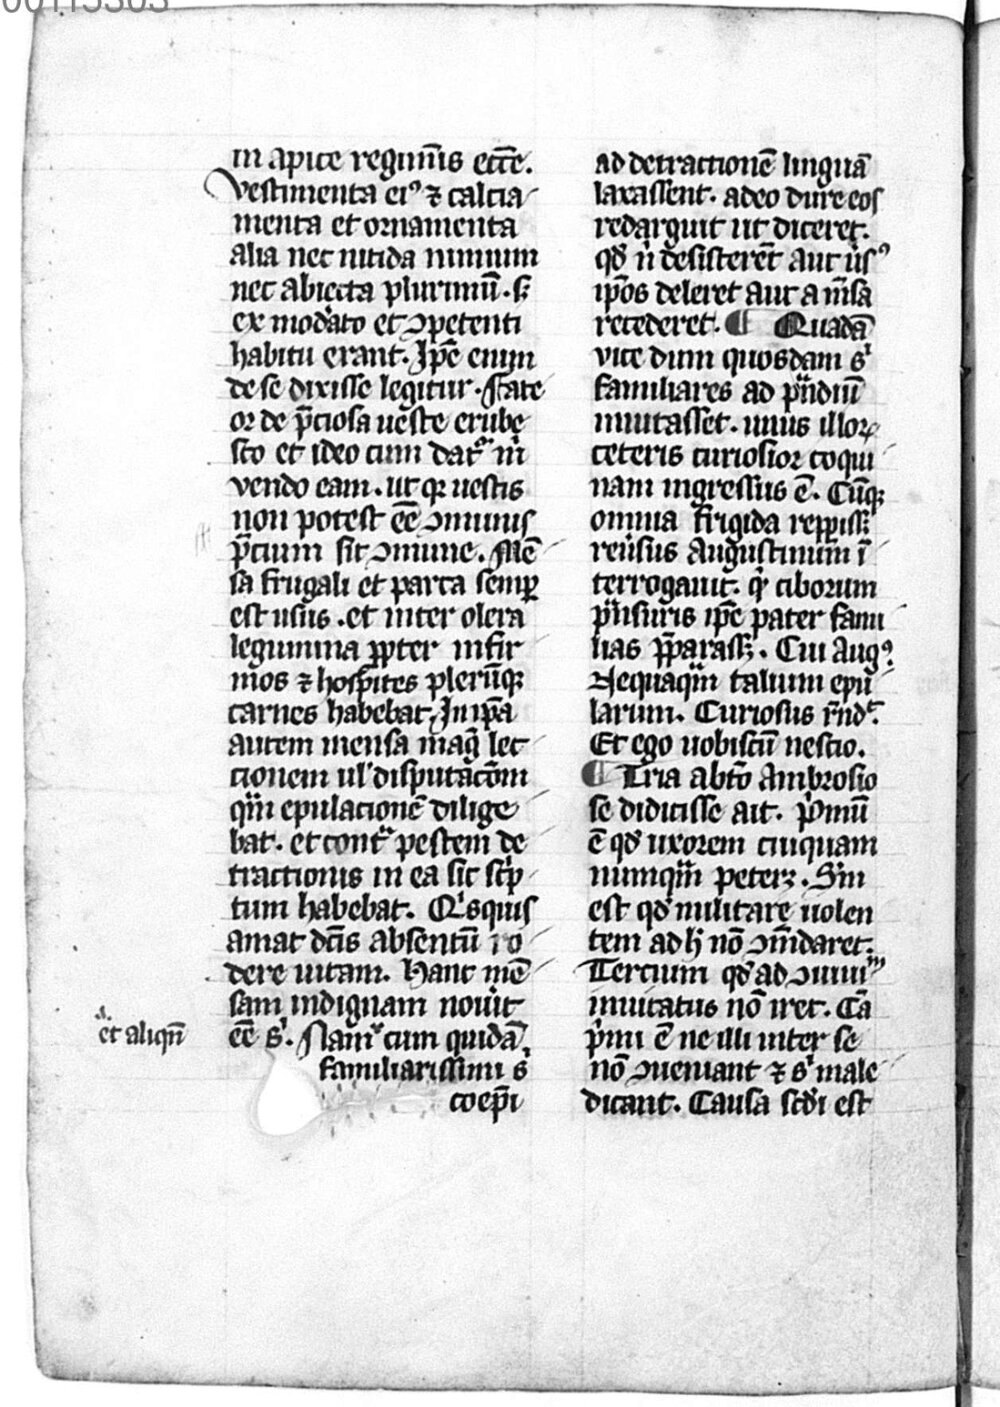 00115303
in apice regiminis eccē.
Vestimenta ei⁹ ⁊ calcia
menta et ornamenta
alia nec nitida nimium
nec abiecta plurimū. s̄
ex modato et ꝯpetenti
habitu erant. Ip̄e enim
de se dixisse legitur. fate
or de p̄ciosa ueste erube
sco et ideo cum datr̄ m̄
vendo eam. ut qr̄ uestis
non potest eē ꝯmunis
p̄cium sit ꝯmune. Mē
sa frugali et parca semꝑ
est usus. et inter olera
legumina ꝓpter infir
mos ⁊ hospites plerūqꝫ
carnes habebat. In ip̄a
autem mensa maḡ lec
cionem ul' disputacōm
qm̄ epulacionē dilige
bat. et contᵃ pestem de
tractionis in ea sic sc̄p
tum habebat. Qⁱsquis
amat dc̄is absentū ro
dere uitam. Hanc mē
sam indignam nouit
et aliqn̄
eē sⁱ. Nam cum quidā
familiarissimi sⁱ
coep̄i
ad detractionē linguā
laxassent. adeo dure eos
redarguit ut diceret.
qd̄ n̄ desisterēt aut ūs⁹
ip̄os deleret aut a m̄sa
recederet. ¶ Quadā
vice dum quosdam sⁱ
familiares ad pn̄diū
inuitasset. unus illoꝝ
ceteris curiosior coqui
nam ingressus ē. Cūqꝫ
omnia frigida repꝑissꝫ
reūsus augustinum ī
terrogauit. qͥ ciborum
pn̄suris ip̄e pater fami
lias p̄parassꝫ. Cui Aug⁹.
Nequaqm̄ talium epu
larum. Curiosus r̄ndᵗ.
Et ego uobiscū nescio.
¶ Tria a btō Ambrosio
se didicisse ait. pⁱmū
ē qd̄ uxorem cuiquam
numqm̄ peterꝫ. Sm̄
est qd̄ militare uolen
tem ad h̄ nō ꝯm̄daret.
Tercium qd̄ ad ꝯuiuiᵘᵐ
inuitatus nō iret. Cā
pⁱmi ē ne illi inter se
nō ꝯueniant ⁊ sⁱ male
dicant. Causa scd̄i est